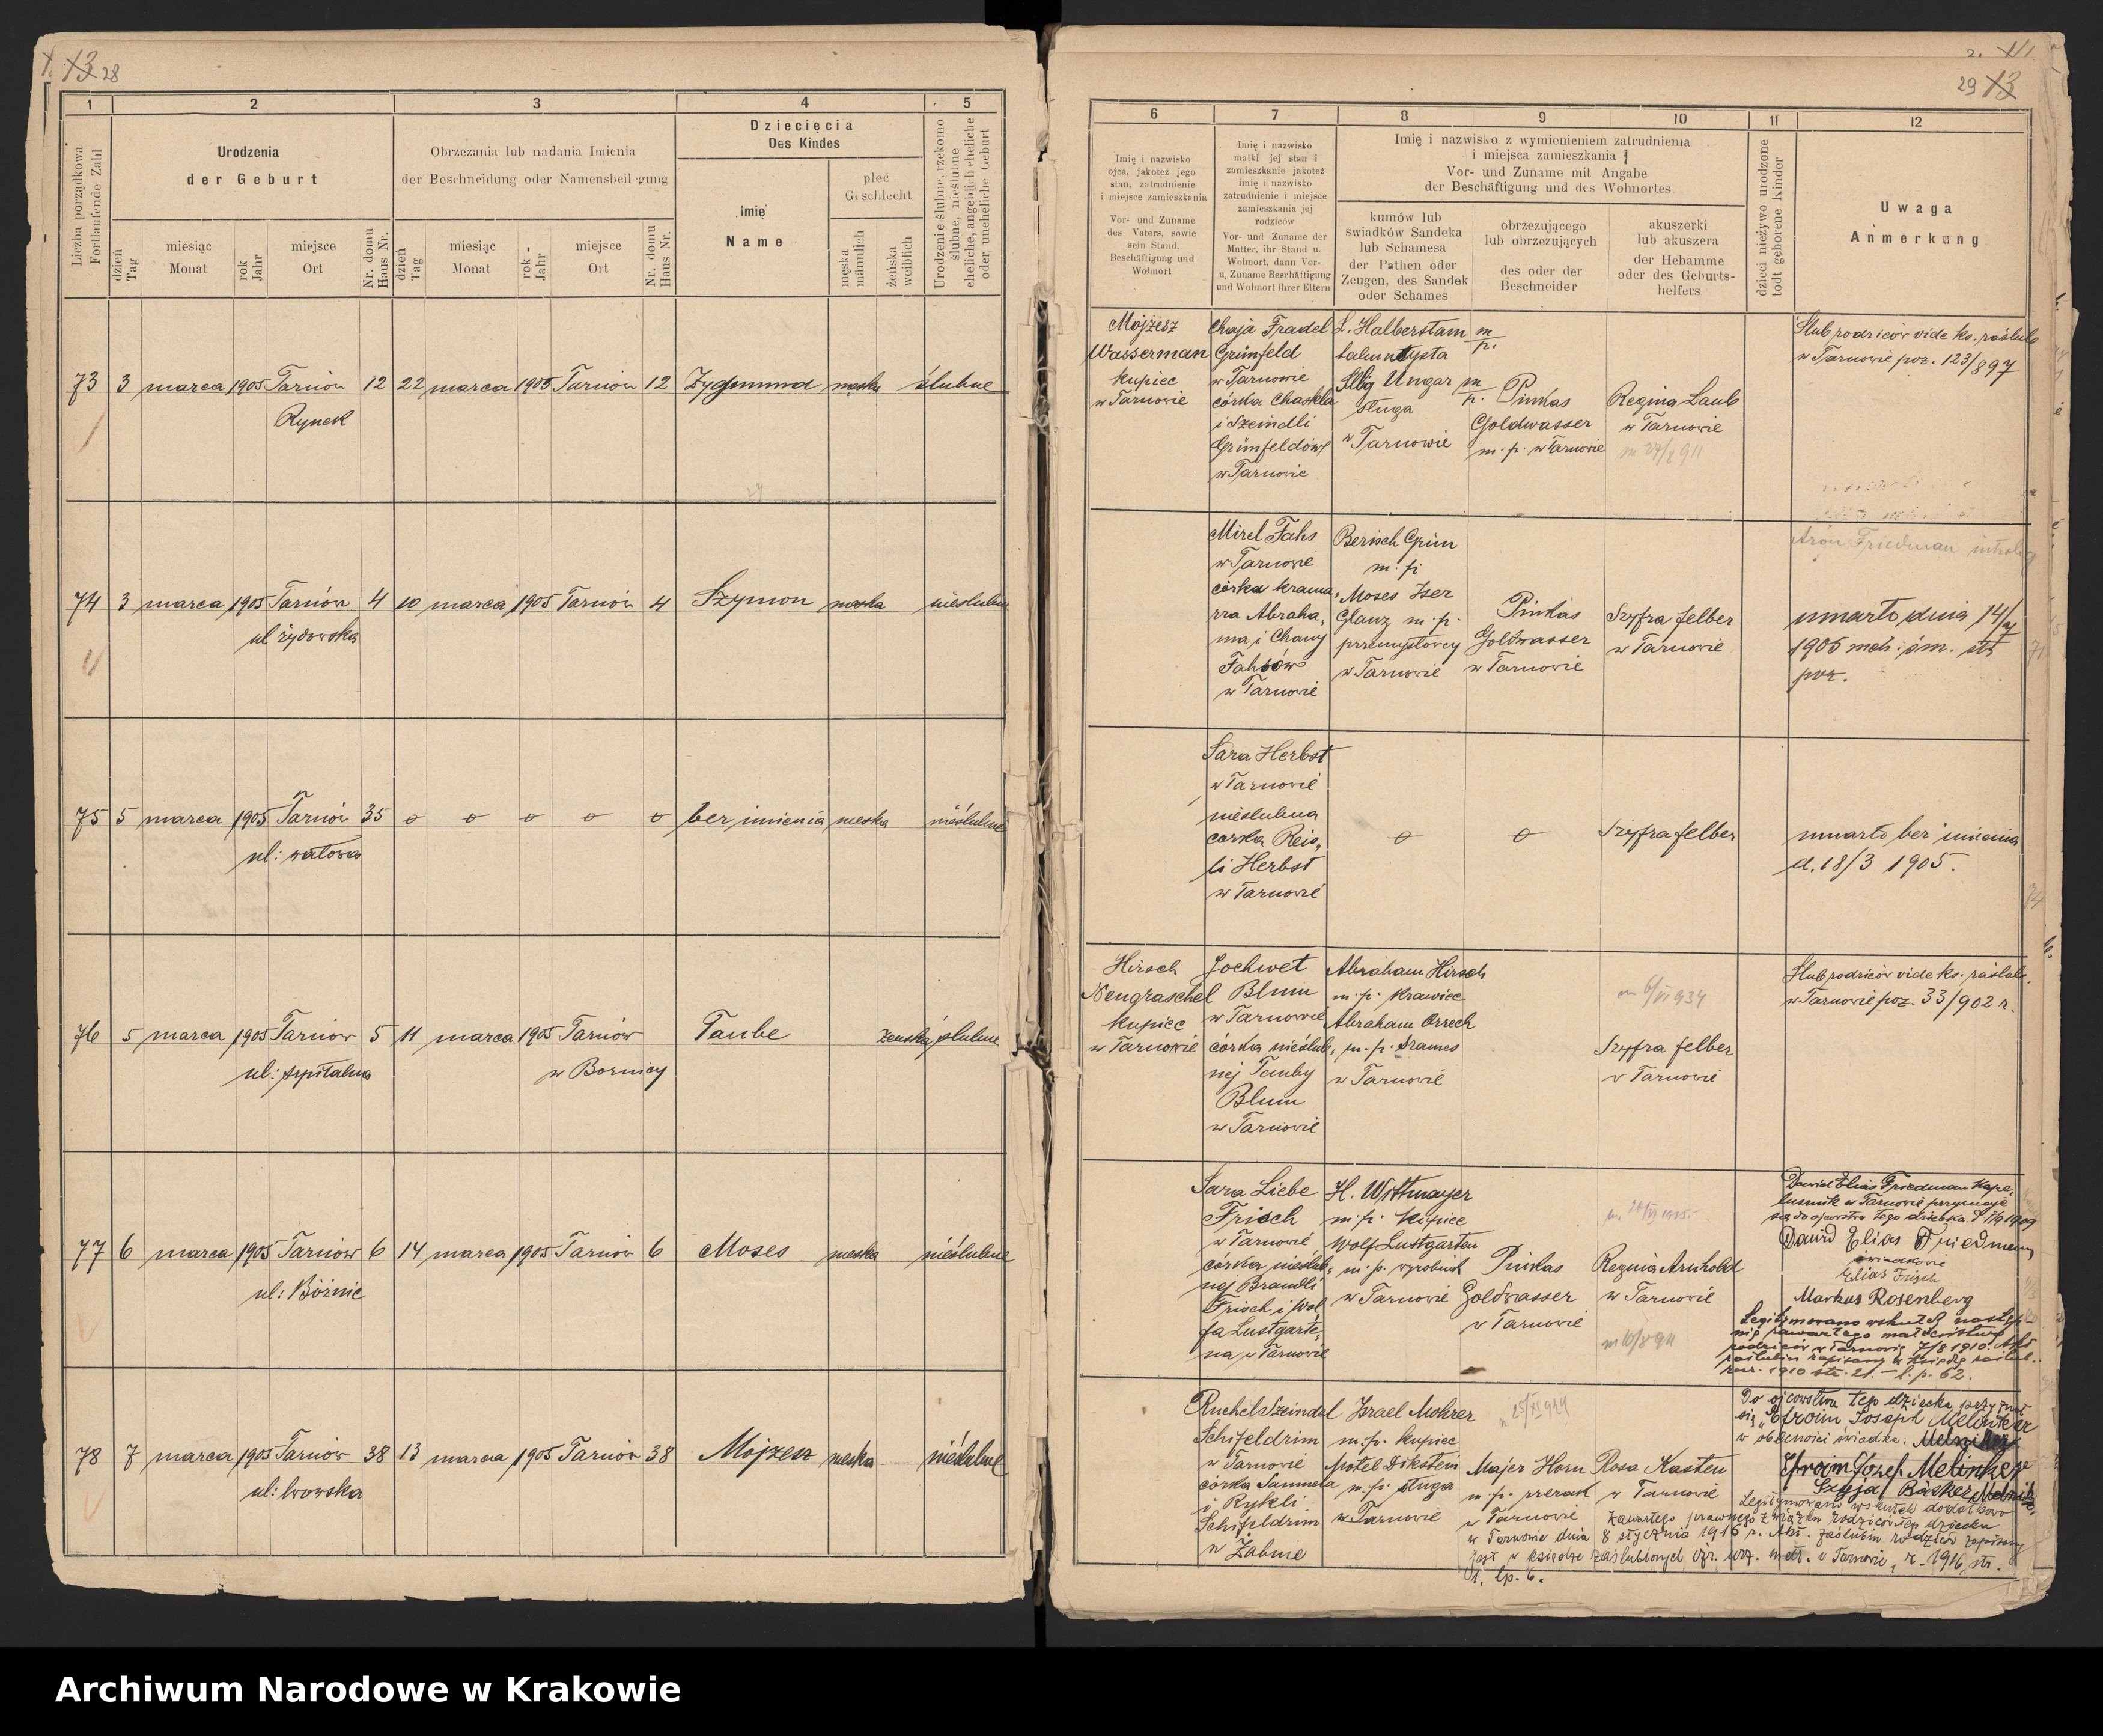 13 28
1
2
3
4
5
Liczba porządkowa
Fortlaufende Zahl
Urodzenia
der Geburt
Obrzezania lub nadania Imienia
der Beschneidung oder Namensbeilegung
Dziecięcia
Des Kindes
imię
Name
płeć
Geschlecht
męska
männlich
żeńska
weiblich
Urodzenie ślubne, rzekomo
ślubne, nieślubne
eheliche, angeblich eheliche
oder uneheliche Geburt
dzień
Tag
miesiąc
Monat
rok
Jahr
miejsce
Ort
Nr. domu
Haus Nr.
dzień
Tag
miesiąc
Monat
rok
Jahr
miejsce
Ort
Nr. domu
Haus Nr.
73 3 marca 1905 Tarnów 12 22 marca 1905 Tarnów 12 Zygmund męska ślubne
Rynek
74 3 marca 1905 Tarnów 4 10 marca 1905 Tarnów 4 Szymon męska nieślubne
ul żydowska
75 5 marca 1905 Tarnów 35 o o o o o bez imienia męska nieślubne
ul: wałowa
76 5 marca 1905 Tarnów 5 11 marca 1905 Tarnów Taube żeńska ślubne
ul: szpitalna w Bożnicy
77 6 marca 1905 Tarnów 6 14 marca 1905 Tarnów 6 Moses męska nieślubne
ul: Bóżnic
78 7 marca 1905 Tarnów 38 13 marca 1905 Tarnów 38 Mojżesz męska nieślubne
ul: lwowska
29 13
6
7
8
9
10
11
12
Imię i nazwisko
ojca, jakoteż jego
stan, zatrudnienie
i miejsce zamieszkania
Vor- und Zuname
des Vaters, sowie
sein Stand,
Beschäftigung und
Wohnort
Imię i nazwisko
matki jej stan i
zamieszkanie jakoteż
imię i nazwisko
zatrudnienie i miejsce
zamieszkania jej
rodziców
Vor- und Zuname der
Mutter, ihr Stand u.
Wohnort, dann Vor-
u. Zuname Beschäftigung
und Wohnort ihrer Eltern
Imię i nazwisko z wymienieniem zatrudnienia
i miejsca zamieszkania
Vor- und Zuname mit Angabe
der Beschäftigung und des Wohnortes
kumów lub
swiadków Sandeka
lub Schamesa
der Pathen oder
Zeugen, des Sandek
oder Schames
obrzezującego
lub obrzezujących
des oder der
Beschneider
akuszerki
lub akuszera
der Hebamme
oder des Geburts-
helfers
dzieci nieżywo urodzone
todt geborene Kinder
Uwaga
Anmerkung
Mojżesz
Wasserman
kupiec
w Tarnowie
Chaja Fradel
Grünfeld
w Tarnowie
córka Chaskla
i Szeindli
Grünfeldów
w Tarnowie
L. Halberstam m.p.
Ungar m.p.
sługa
w Tarnowie
Pinkas
Goldwasser
m. p. w Tarnowie
Regina Laub
w Tarnowie
Ślub rodziców vide ks. zaślub
w Tarnowie poz. 123/897
Mirel Fahs
w Tarnowie
córka krama,
rza Abraha,
ma i Chany
Fahsów
w Tarnowie
Berisch Grün
m. p.
Moses Iser
Glanz m. p.
przemysłowcy
w Tarnowie
Pinkas
Goldwasser
w Tarnowie
Szyfra Felber
w Tarnowie
Aron Friedman
umarło dnia 14/7
1905 str
poz.
Sara Herbst
w Tarnowie
nieślubna
córka Reis,
li Herbst
w Tarnowie
o
o
Szyfra Felber
umarło bez imienia
d. 18/3 1905.
Hirsch
Neugraschel
kupiec
w Tarnowie
Jochwet
Blum
w Tarnowie
córka nieślub,
nej Tauby
Blum
w Tarnowie
Abraham Hirsch
m. p. krawiec
Abraham Orzech
m. p. szames
w Tarnowie
Szyfra Felber
w Tarnowie
Ślub rodziców vide ks. zaślub.
w Tarnowie poz. 33/902 r.
Sara Liebe
Frisch
w Tarnowie
córka nieślub,
nej Brandli
Frisch i Wol,
fa Lustgarte,
na w Tarnowie
H. Wittmayer
m. p. kupiec
Wolf Lustgarten
m. p. wyrobnik
w Tarnowie
Pinkas
Goldwasser
w Tarnowie
Regina Arnhold
w Tarnowie
Dawid Elias Friedman kape,
lusznik w Tarnowie przyznaje
się do ojcowstwa tego dziecka
Dawid Elias Friedmann
świadkowie
Elias Frisch
Markus Rosenberg
Legitymowano wskutek następ
nie zawartego małżeństwa
rodziców w Tarnowie 7/8 1910. Akt
zaślubin zapisany w księdze zaślub.
1910 str. 21. - l. p. 62.
Ruchel Szeindel
Schifeldrim
w Tarnowie
córka Samuela
i Rykli
Schifeldrim
w Żabnie
Izrael Mohrer
m. p. kupiec
Motel Dikstein
m. p. sługa
w Tarnowie
Majer Horn
m. p. rzezak
w Tarnowie
Rosa Kasten
w Tarnowie
Do ojcowstwa tego dziecka przyznał
się Efroim Joseph Melniker
w obecności świadka:
Efroim Josef Melinker
Szyja Bäcker
Legitymowano wskutek dodatkowo
zawartego prawnego związku rodziców tego dziecka
w Tarnowie dnia 8 stycznia 1916 r. Akt. zaślubin rodziców zapisany
jest w księdze zaślubionych izr. urz. metr. w Tarnowie, r. 1916, str.
1, lp. 6.
Archiwum Narodowe w Krakowie